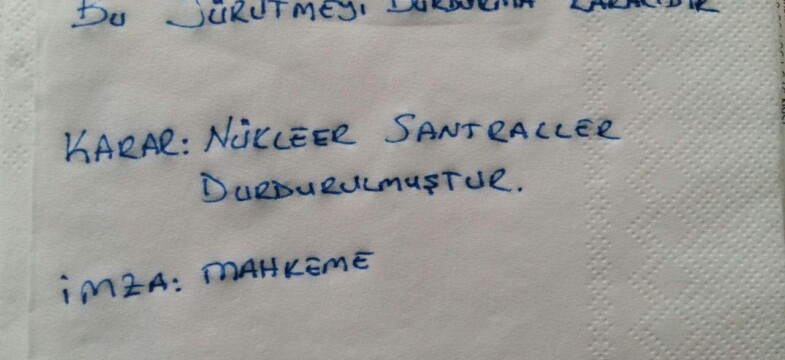 BU YÜRÜTMEYİ DURDURMA KARARIDIR
KARAR: NÜKLEER SANTRALLER
DURDURULMUŞTUR.
İMZA: MAHKEME